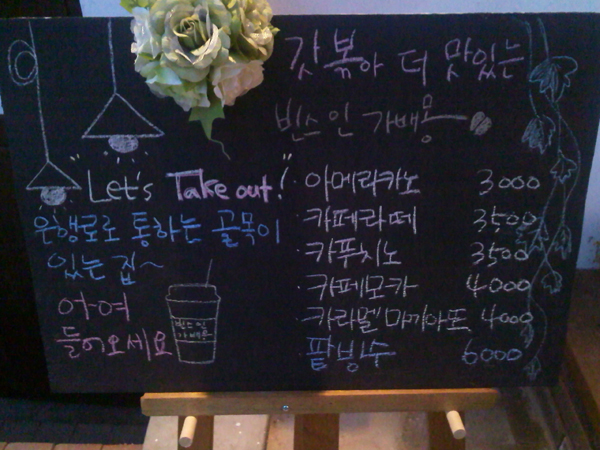 갓 볶아 더 맛있는
빈스 인 가배몽
"Let's Take out!"
은행로로 통하는 골목이
있는 집~
어여
들어오세요
빈스인
가배몽
· 아메리카노 3000
· 카페라떼 3500
· 카푸치노 3500
· 카페모카 4000
· 카라멜마끼아또 4000
· 팥빙수 6000